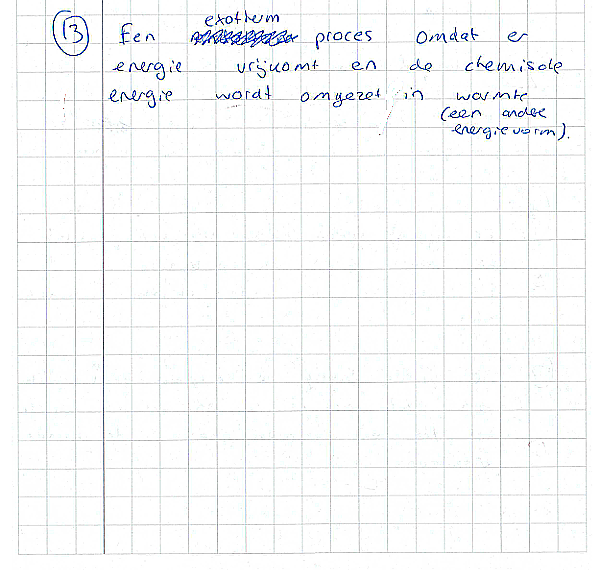 13 Een exotherm proces omdat er
energie vrijkomt en de chemische
energie wordt omgezet in warmte
(een andere
energievorm).